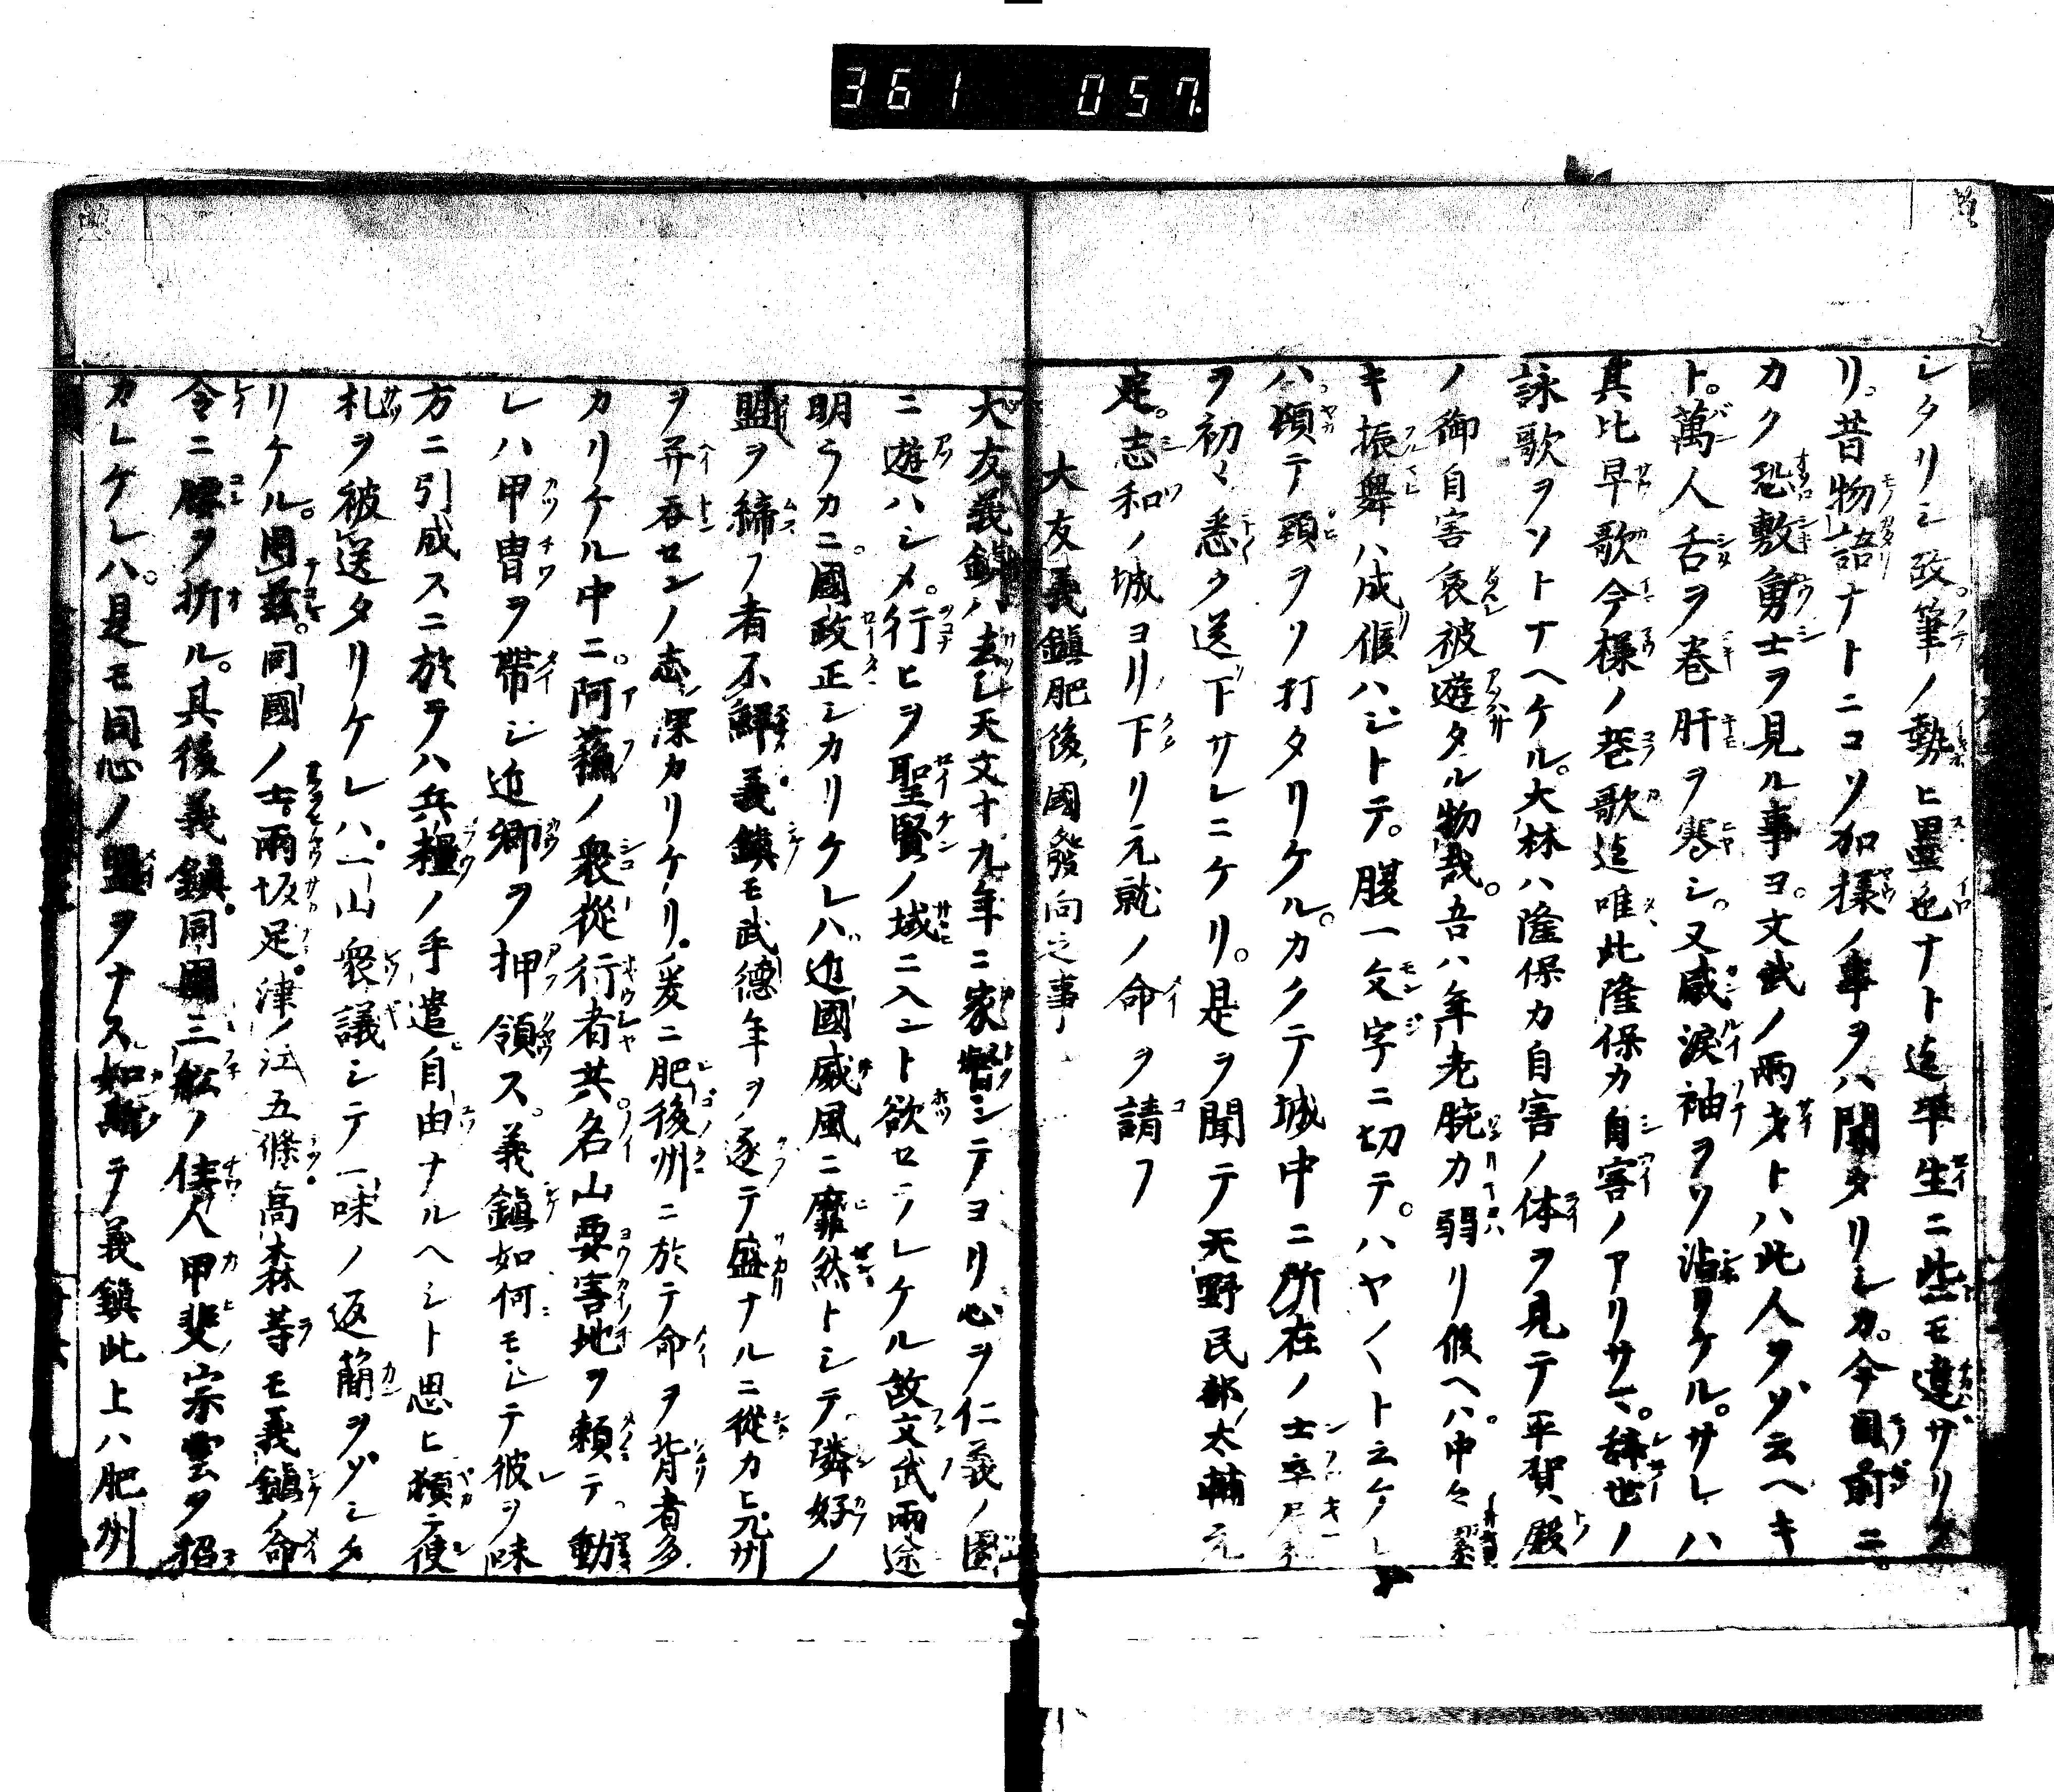 361 057
シタリシ政筆ノ勢ヒ墨色ナト迄平生ニ些モ違ザリケ
リ昔物語ナトニコソ加様ノ事ヲハ聞タリシカ今目前ニ
カク恐敷勇士ヲ見ル事ヨ文武ノ両才トハ此人ヲゾ云ヘキ
ト萬人舌ヲ巻肝ヲ寒シ又感涙袖ヲソ沾ヲケルサレハ
其比早歌今様ノ巷歌迄唯此隆保カ自害ノアリサマ辞世ノ
詠歌ヲソトナヘケル大林ハ隆保カ自害ノ体ヲ見テ平賀殿
ノ御自害哀被遊タル物哉吾ハ年老腕カ弱リ候ヘハ中々
キ振舞ハ成候ハシトテ腹一文字ニ切テハヤ〳〵ト云ケレ
ハ頓テ頸ヲソ打タリケルカクテ城中ニ所在ノ士卒
ヲ初々悉ク送下サレニケリ是ヲ聞テ天野民部太輔元
定志和ノ城ヨリ下リ元就ノ命ヲ請フ
大友義鎮肥後國發向之事
大友義鎮ハ去シ天文十九年ニ家督シテヨリ心ヲ仁義ノ園
ニ遊ハシメ行ヒヲ聖賢ノ域ニ入ント欲セラレケル故文武両途
明ラカニ國政正シカリケレバ近國威風ニ靡然トシテ隣好ノ
盟ヲ締フ者不鮮義鎮モ武徳年ヲ逐テ盛ナルニ從カヒ九州
ヲ并呑センノ志深カリケリ爰ニ肥後州ニ於テ命ヲ背者多
カリケル中ニ阿蘓ノ衆從行者共名山要害地ヲ頼テ動
レハ甲冑ヲ帶シ近郷ヲ押領ス義鎮如何モシテ彼ヲ味
方ニ引成スニ於テハ兵糧ノ手遣自由ナルヘシト思ヒ頓テ使
札ヲ被送タリケレハ一山衆議シテ一味ノ返蕳ヲゾシタ
リケル因茲同國ノ吉両坂足津ノ江五條高森等モ義鎮ノ命
令ニ腰ヲ折ル其後義鎮同國三舩ノ住人甲斐宗雲ヲ招
カレケレハ是モ同心ノ盟ヲナス如斯テ義鎮此上ハ肥州